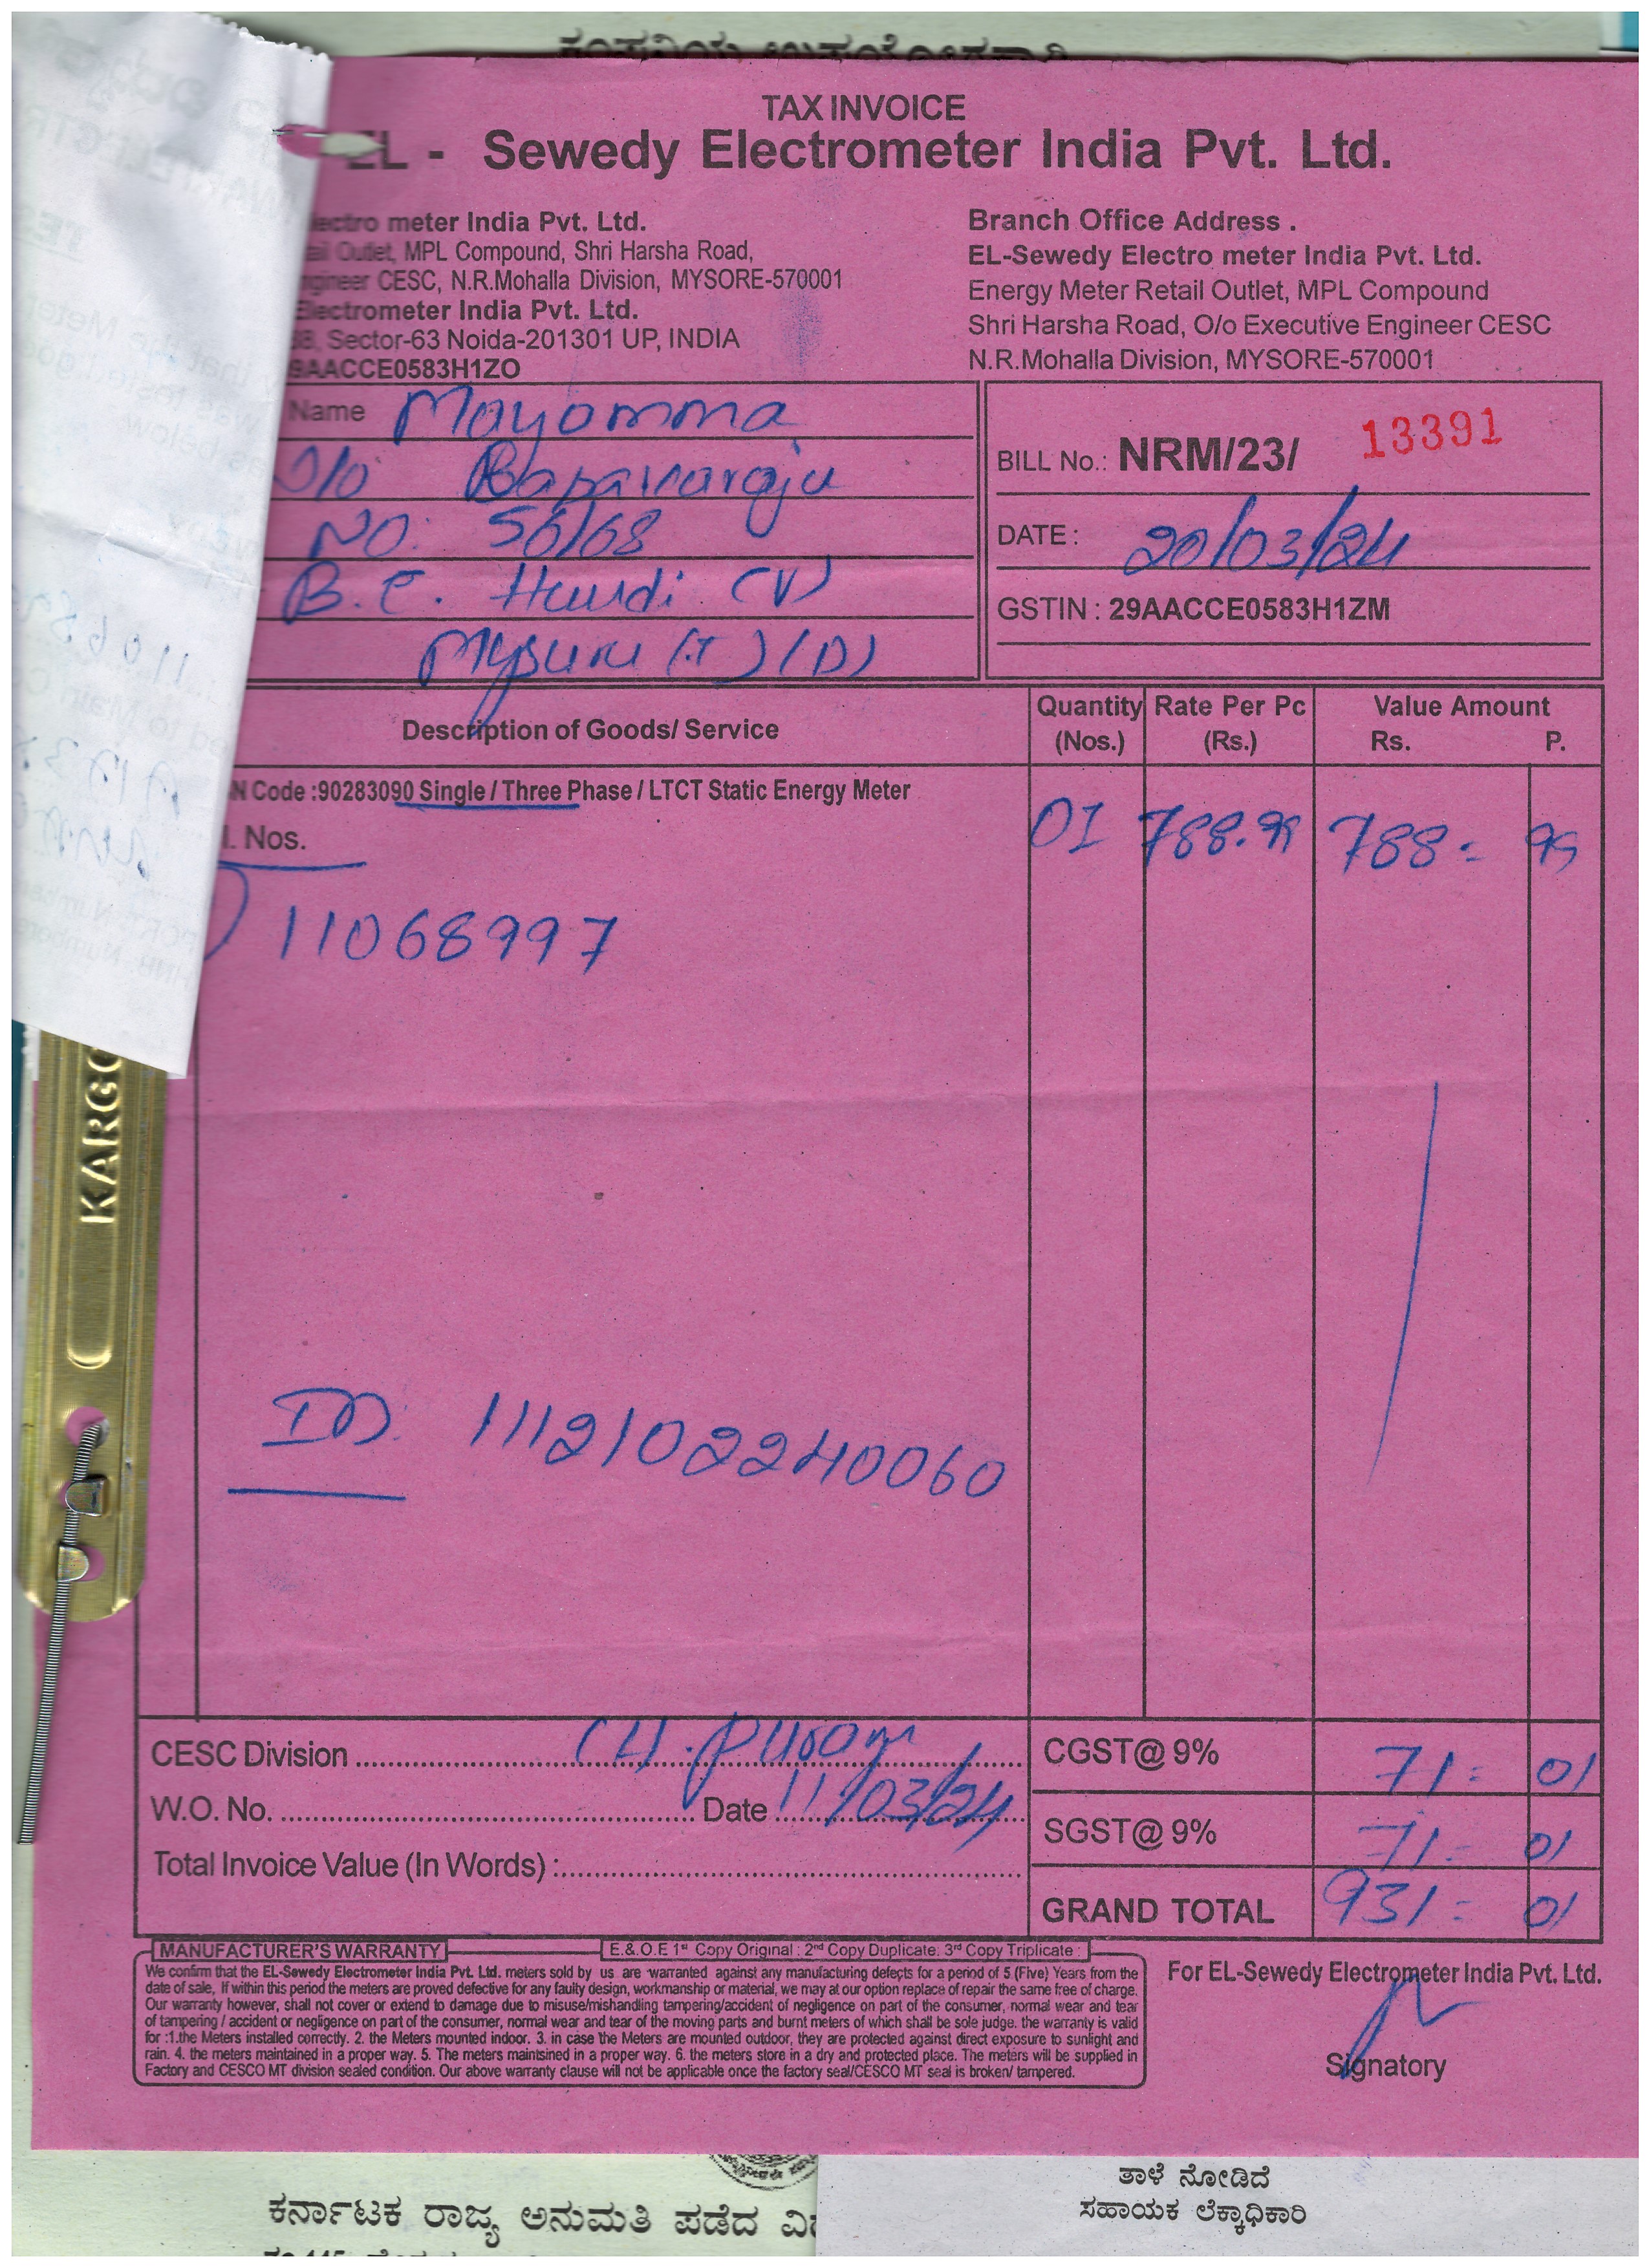 TAX INVOICE
EL - Sewedy Electrometer India Pvt. Ltd.
meter India Pvt. Ltd.
Outlet, MPL Compound, Shri Harsha Road,
CESC, N.R.Mohalla Division, MYSORE-570001
Electrometer India Pvt. Ltd.
Sector-63 Noida-201301 UP, INDIA
9AACCE0583H1ZO
Branch Office Address .
EL-Sewedy Electro meter India Pvt. Ltd.
Energy Meter Retail Outlet, MPL Compound
Shri Harsha Road, O/o Executive Engineer CESC
N.R.Mohalla Division, MYSORE-570001
Name Mayamma
Basavaraju
NO: 56/68
B.C. Hundi (V)
Mysuru (T) (D)
BILL No.: NRM/23/ 13391
DATE : 20/03/24
GSTIN : 29AACCE0583H1ZM
Description of Goods/ Service Quantity (Nos.) Rate Per Pc (Rs.) Value Amount Rs. P.
N Code :90283090 Single / Three Phase / LTCT Static Energy Meter
Nos. 01 788.99 788= 99
11068997
ID 1112102240060
CESC Division ........
W.O. No. ........ Date 11/03/24
Total Invoice Value (In Words) :........
CGST@ 9% 71= 01
SGST@ 9% 71= 01
GRAND TOTAL 931= 01
MANUFACTURER'S WARRANTY
E.& O.E 1st Copy Original : 2nd Copy Duplicate. 3rd Copy Triplicate :
We confirm that the EL-Sewedy Electrometer India Pvt. Ltd. meters sold by us are warranted against any manufacturing defects for a period of 5 (Five) Years from the
date of sale, If within this period the meters are proved defective for any faulty design, workmanship or material, we may at our option replace of repair the same free of charge.
Our warranty however, shall not cover or extend to damage due to misuse/mishandling tampering/accident of negligence on part of the consumer, normal wear and tear
of tampering / accident or negligence on part of the consumer, normal wear and tear of the moving parts and burnt meters of which shall be sole judge. the warranty is valid
for :1.the Meters installed correctly. 2. the Meters mounted indoor. 3. in case the Meters are mounted outdoor, they are protected against direct exposure to sunlight and
rain. 4. the meters maintained in a proper way. 5. The meters maintsined in a proper way. 6. the meters store in a dry and protected place. The meters will be supplied in
Factory and CESCO MT division sealed condition. Our above warranty clause will not be applicable once the factory seal/CESCO MT seal is broken/ tampered.
For EL-Sewedy Electrometer India Pvt. Ltd.
Signatory
KARGO
ತಾಳೆ ನೋಡಿದೆ
ಸಹಾಯಕ ಲೆಕ್ಕಾಧಿಕಾರಿ
ಕರ್ನಾಟಕ ರಾಜ್ಯ ಅನುಮತಿ ಪಡೆದ